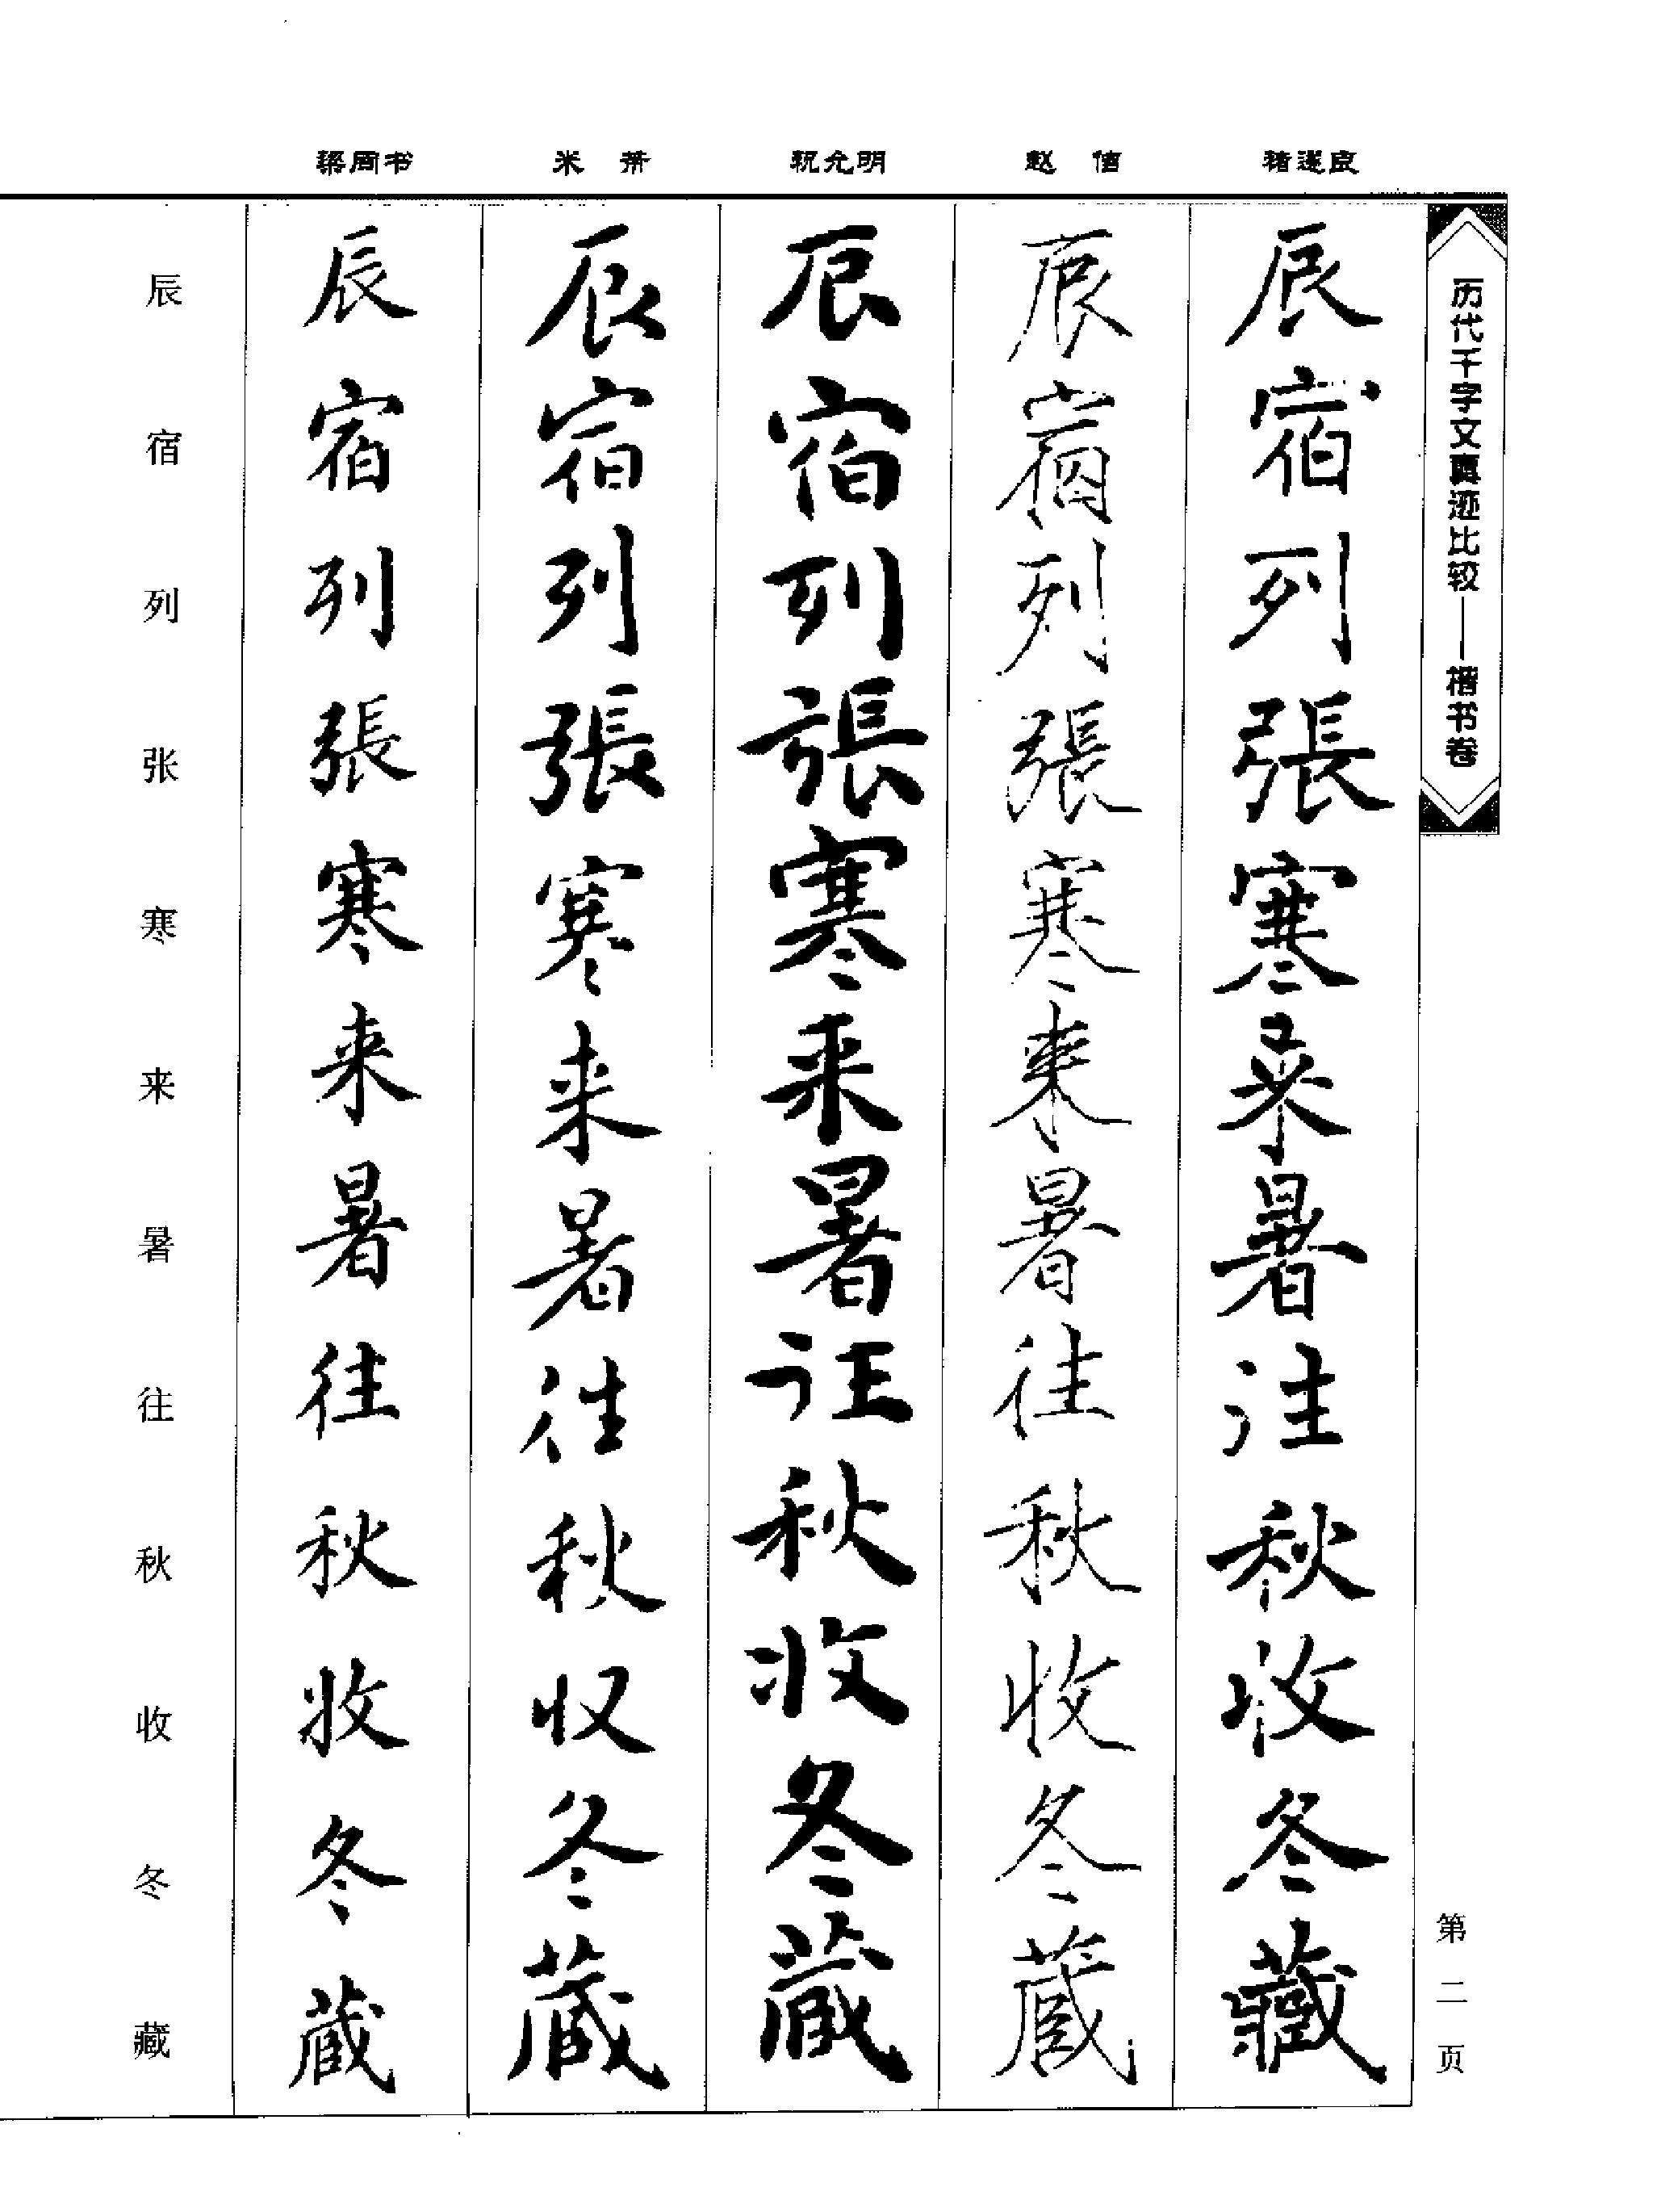 历代千字文真迹比较——楷书卷
第二页
褚遂良
辰宿列張寒来暑往秋收冬藏
赵佶
辰宿列張寒来暑往秋收冬藏
祝允明
辰宿列張寒来暑往秋收冬藏
米芾
辰宿列張寒来暑往秋収冬藏
梁同书
辰宿列張寒来暑往秋收冬藏
辰宿列张寒来暑往秋收冬藏